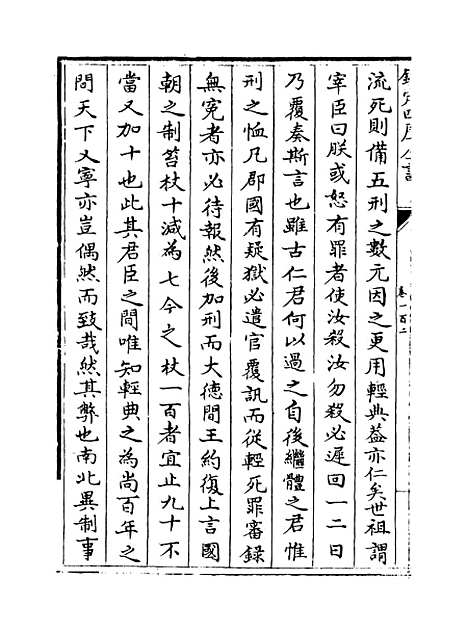 欽定四庫全書
卷一百二
流死則備五刑之數元因之更用輕典葢亦仁矣世祖謂
宰臣曰朕或怒有罪者使汝殺汝勿殺必遲回一二日
乃覆奏斯言也雖古仁君何以過之自後繼體之君惟
刑之恤凡郡國有疑獄必遣官覆訊而從輕死罪審録
無寃者亦必待報然後加刑而大徳間王約復上言國
朝之制笞杖十減為七今之杖一百者宜止九十不
當又加十也此其君臣之間唯知輕典之為尚百年之
間天下乂寧亦豈偶然而致哉然其弊也南北異制事